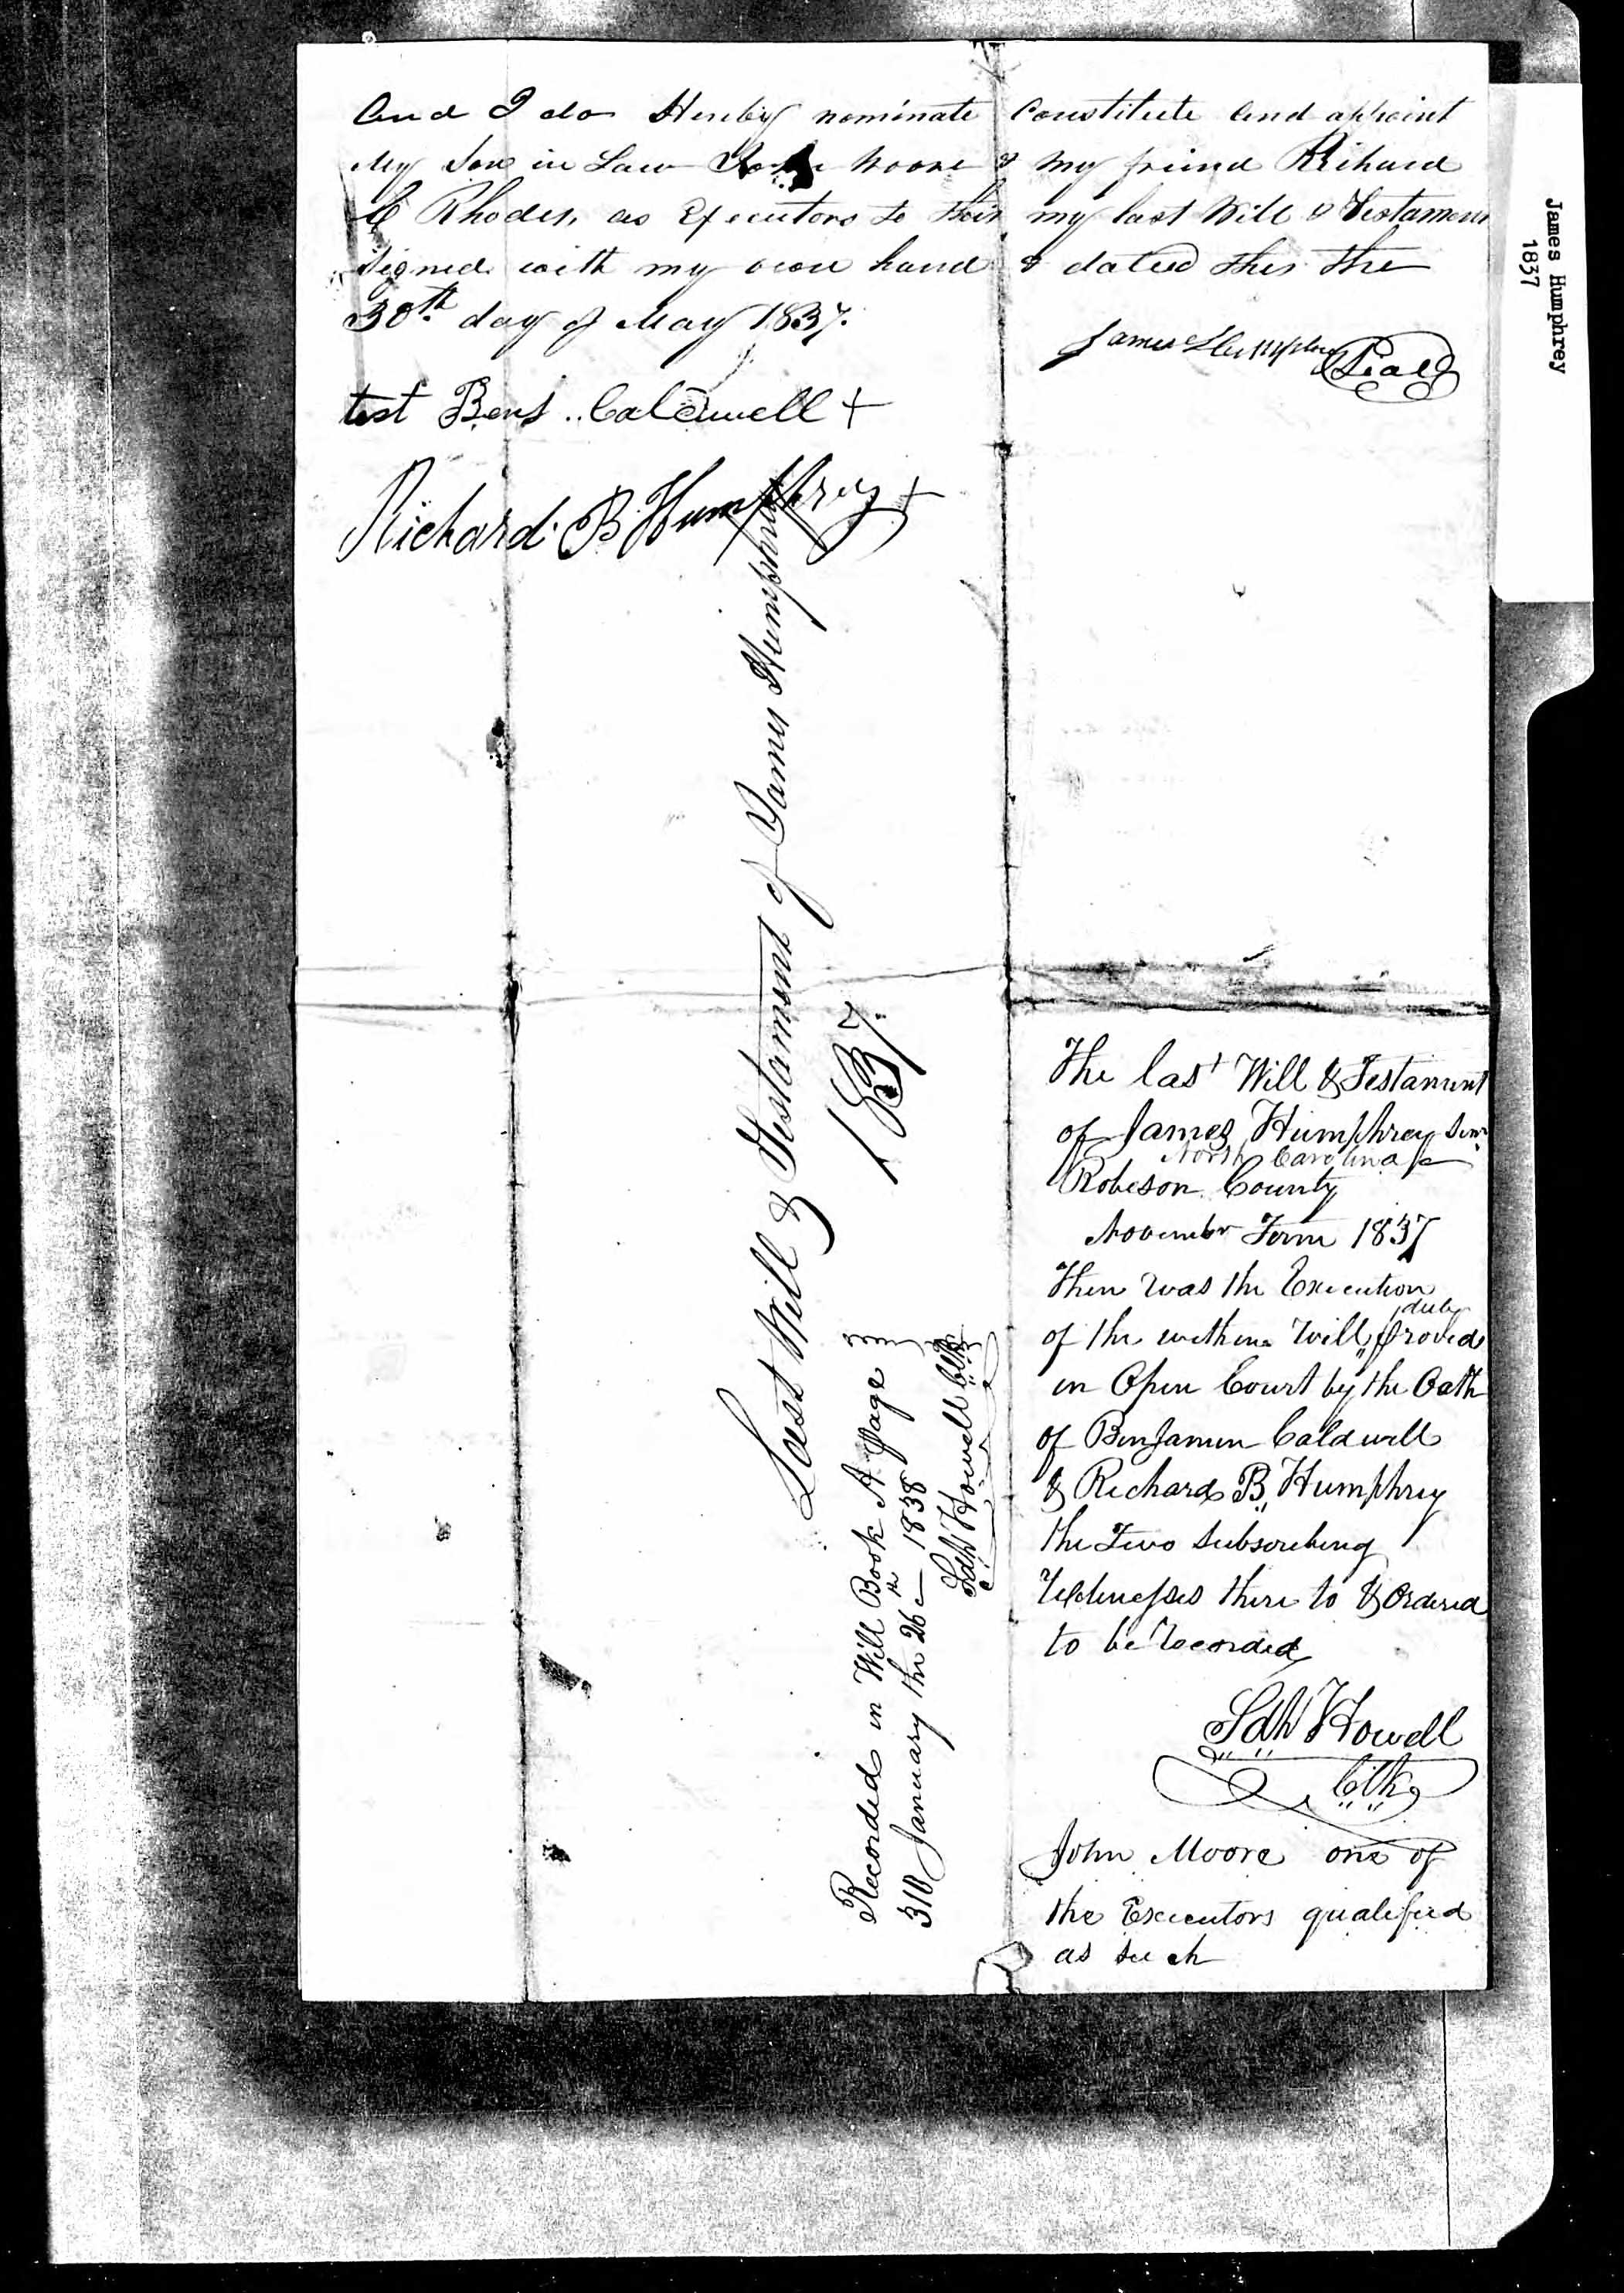 And I do Hereby nominate Constitute And appoint
My Son in Law John Moore & My friend Richard
C Rhodes, as Executors to this my last Will & Testament
signed with my own hand & dated this the
30th day of May 1837.
James Humphrey Seal
test Benj. Caldwell +
Richard B Humphrey +
Last Will & Testament of James Humphrey
1837
Recorded in Will Book A Page
310 January the 26th 1838
Howell Clk
The last Will & Testament
of James Humphrey Senr
North Carolina
Robeson County
November Term 1837
Then was the Execution
duly
of the within Will, proved
in Open Court by the Oath
of Benjamin Caldwell
& Richard B Humphrey
the Two Subscribing
Witnesses there to & Ordered
to be recorded
Howell
Clk
John Moore one of
the Executors qualified
as such
James Humphrey
1837